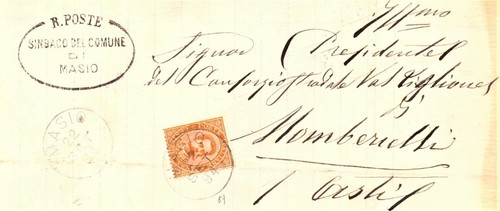 R. POSTE
SINDACO DEL COMUNE
DI
MASIO
Ill.mo
Signor Presidente
del Consorzio Stradale Val Tiglione
di
Mombercelli
Asti
MASIO
22